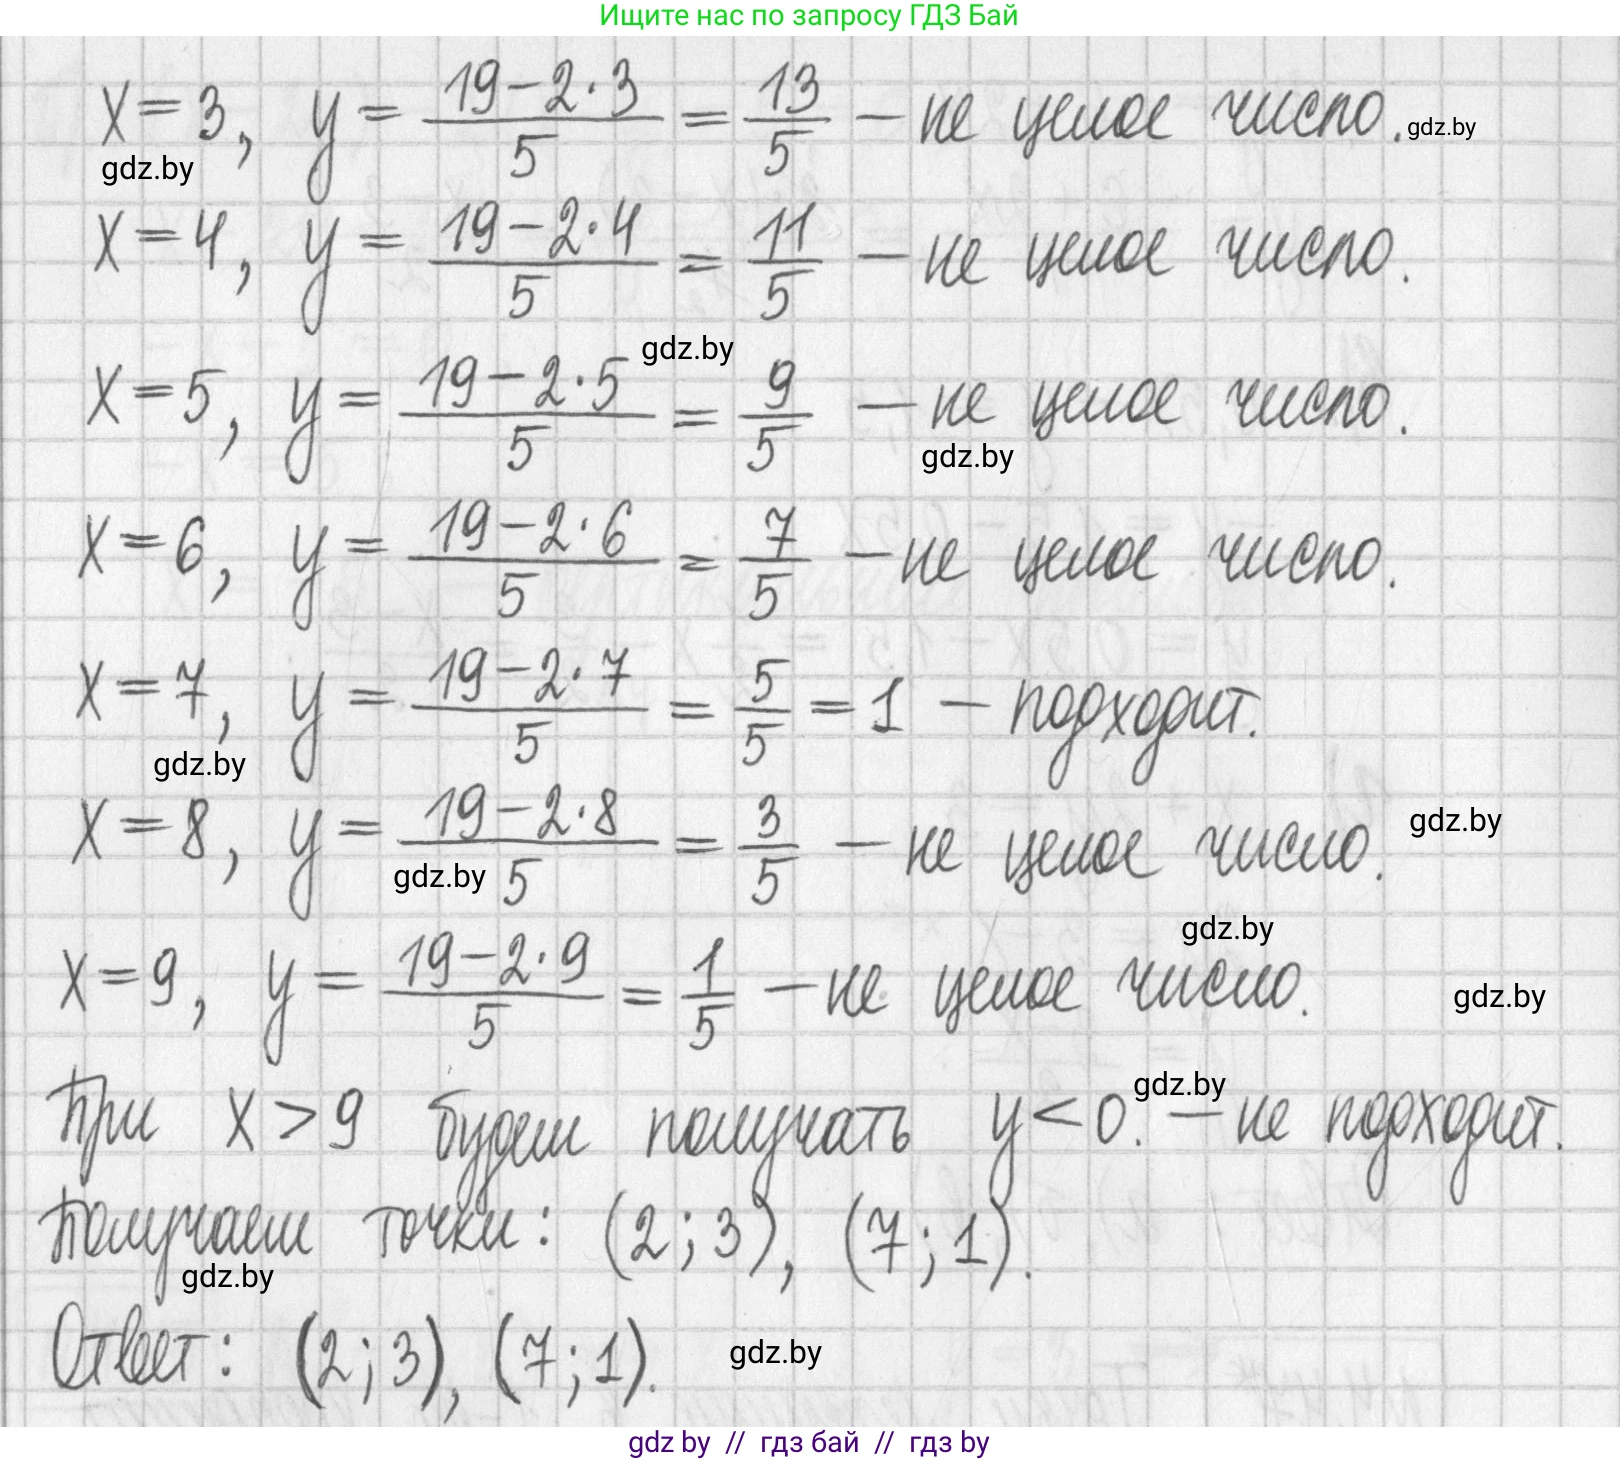 Ищите нас по запросу ГДЗ Бай
x=3, y = (19-2·3)/5 = 13/5 — не целое число. gdz.by
gdz.by
x=4, y = (19-2·4)/5 = 11/5 — не целое число.
gdz.by
x=5, y = (19-2·5)/5 = 9/5 — не целое число.
gdz.by
x=6, y = (19-2·6)/5 = 7/5 — не целое число.
x=7, y = (19-2·7)/5 = 5/5 = 1 — подходит.
gdz.by
x=8, y = (19-2·8)/5 = 3/5 — не целое число. gdz.by
gdz.by
gdz.by
x=9, y = (19-2·9)/5 = 1/5 — не целое число. gdz.by
gdz.by
При x > 9 будем получать y < 0. — не подходит.
Получаем точки: (2; 3), (7; 1).
gdz.by
Ответ: (2; 3), (7; 1). gdz.by
gdz by // гдз бай // гдз by